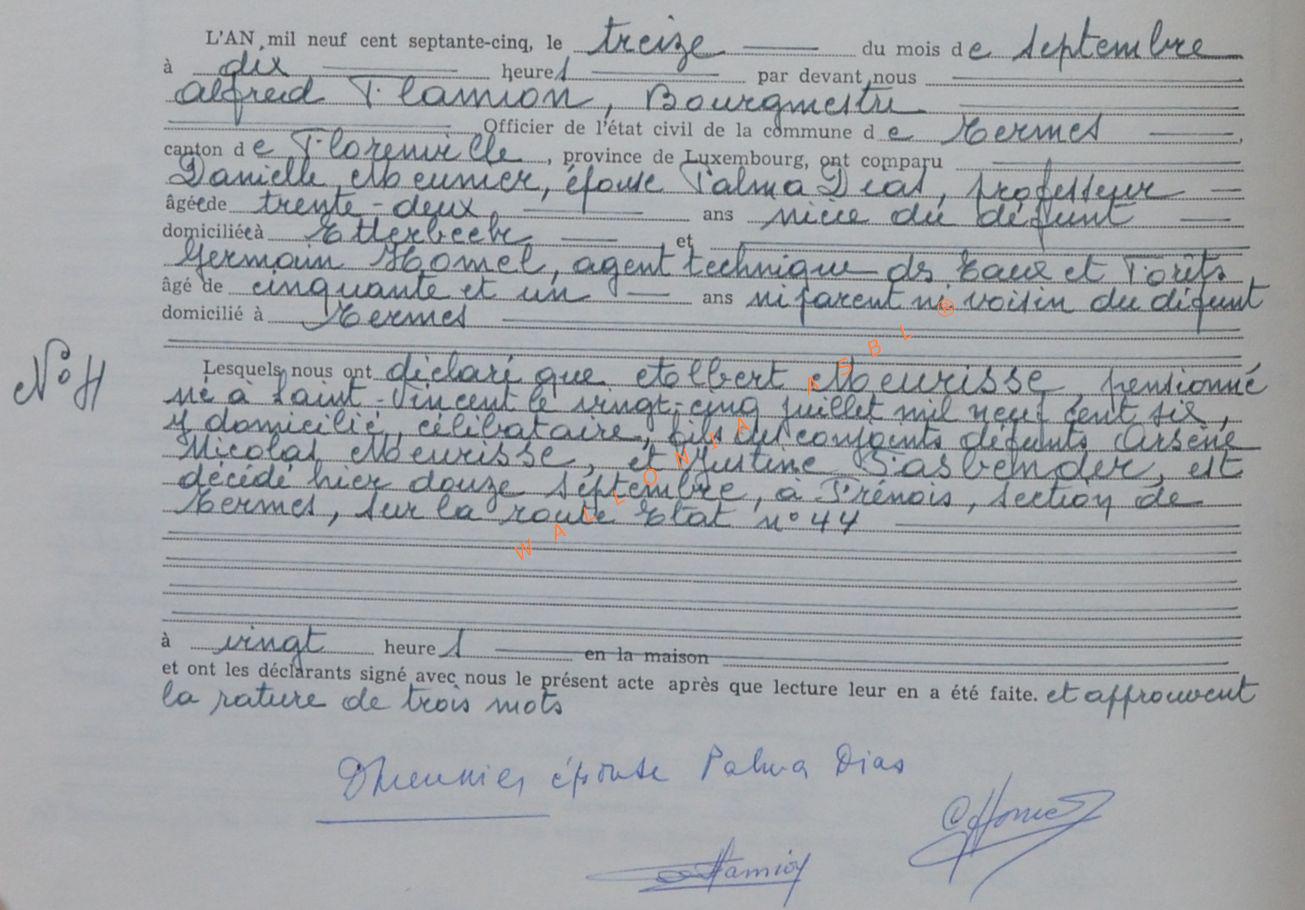 L'AN mil neuf cent septante-cinq, le treize du mois de septembre
à dix heures par devant nous
Alfred Flamion, Bourgmestre
Officier de l'état civil de la commune de Termes,
canton de Florenville, province de Luxembourg, ont comparu
Danielle Meunier, épouse Palma Dias, professeur
âgée de trente-deux ans nièce du défunt
domiciliée à Etterbeek, et
Germain Homel, agent technique des Eaux et Forêts
âgé de cinquante et un ans ni parent ni voisin du défunt
domicilié à Termes
N° 11
Lesquels nous ont déclaré que Albert Meurisse, pensionné
né à Saint-Vincent le vingt-cinq juillet mil neuf cent six,
y domicilié, célibataire, fils des conjoints défunts Arsène
Nicolas Meurisse, et Justine Fasbender, est
décédé hier douze septembre, à Frénois, section de
Termes, sur la route Etat n° 44
à vingt heures en la maison
et ont les déclarants signé avec nous le présent acte après que lecture leur en a été faite. et approuvent
la rature de trois mots
DMeunier épouse Palma Dias
WALLONIA ASBL ©